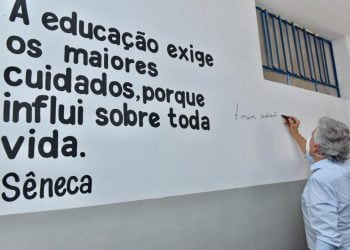 A educação exige
os maiores
cuidados,porque
influi sobre toda
vida.
Sêneca